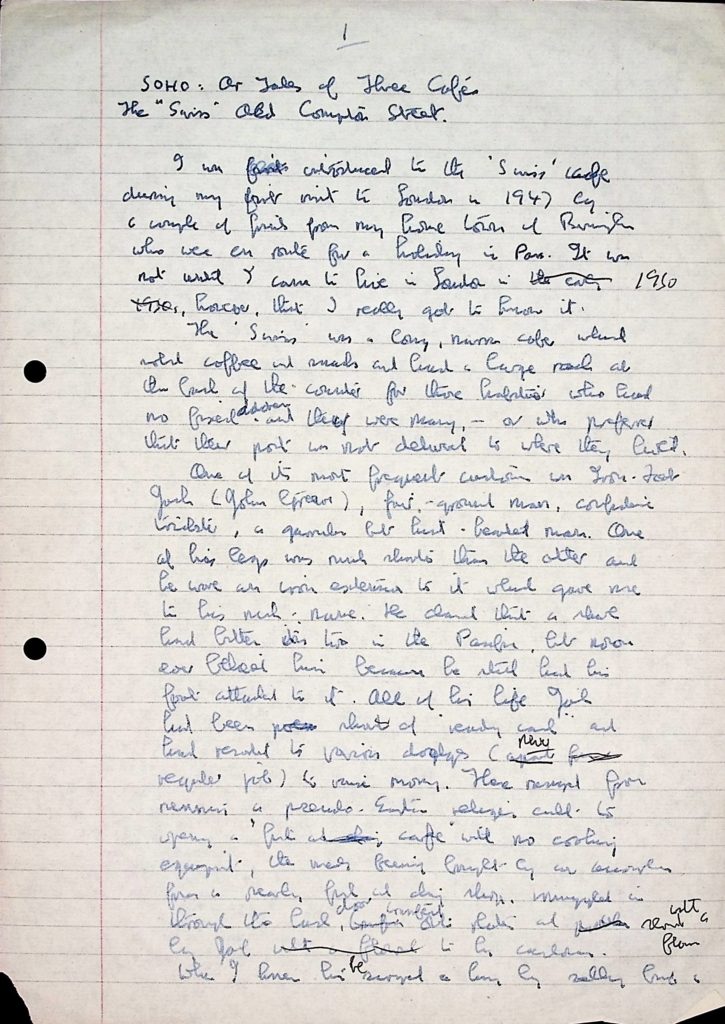 1
SOHO: Or Tales of Three Cafés
The "Swiss" Old Compton Street.
I was introduced to the 'Swiss' cafe
during my first visit to London in 1947 by
a couple of friends from my home town of
who were en route for a holiday in Paris. It was
not until I came to live in London in the early 1950
1950s, however, that I really got to know it.
The 'Swiss' was a long, narrow cafe which
coffee and snacks and had a large rack at
the back of the counter for those habitués who had
no fixed and they were many, – or who preferred
that their post was not delivered to where they lived.
One of its most frequent customers was Iron-Foot
Jack (John), man, confidence
trickster, a garrulous but kind-hearted man. One
of his legs was much shorter than the other and
he wore an iron extension to it which gave rise
to his nick-name. He claimed that a shark
had bitten in the, but no one
ever believed him because he still had his
foot attached to it. All of his life Jack
had been short of "ready cash" and
had resorted to various dodges (
regular job) to raise money. These ranged from
running a pseudo-Eastern religious cult to
opening a "fish cafe" with no cooking
equipment, the meals being brought by an
from a nearby fish and chip shop, smuggled in
through the back door, plates and with a
by Jack to his customers.
When I knew him he a living by selling